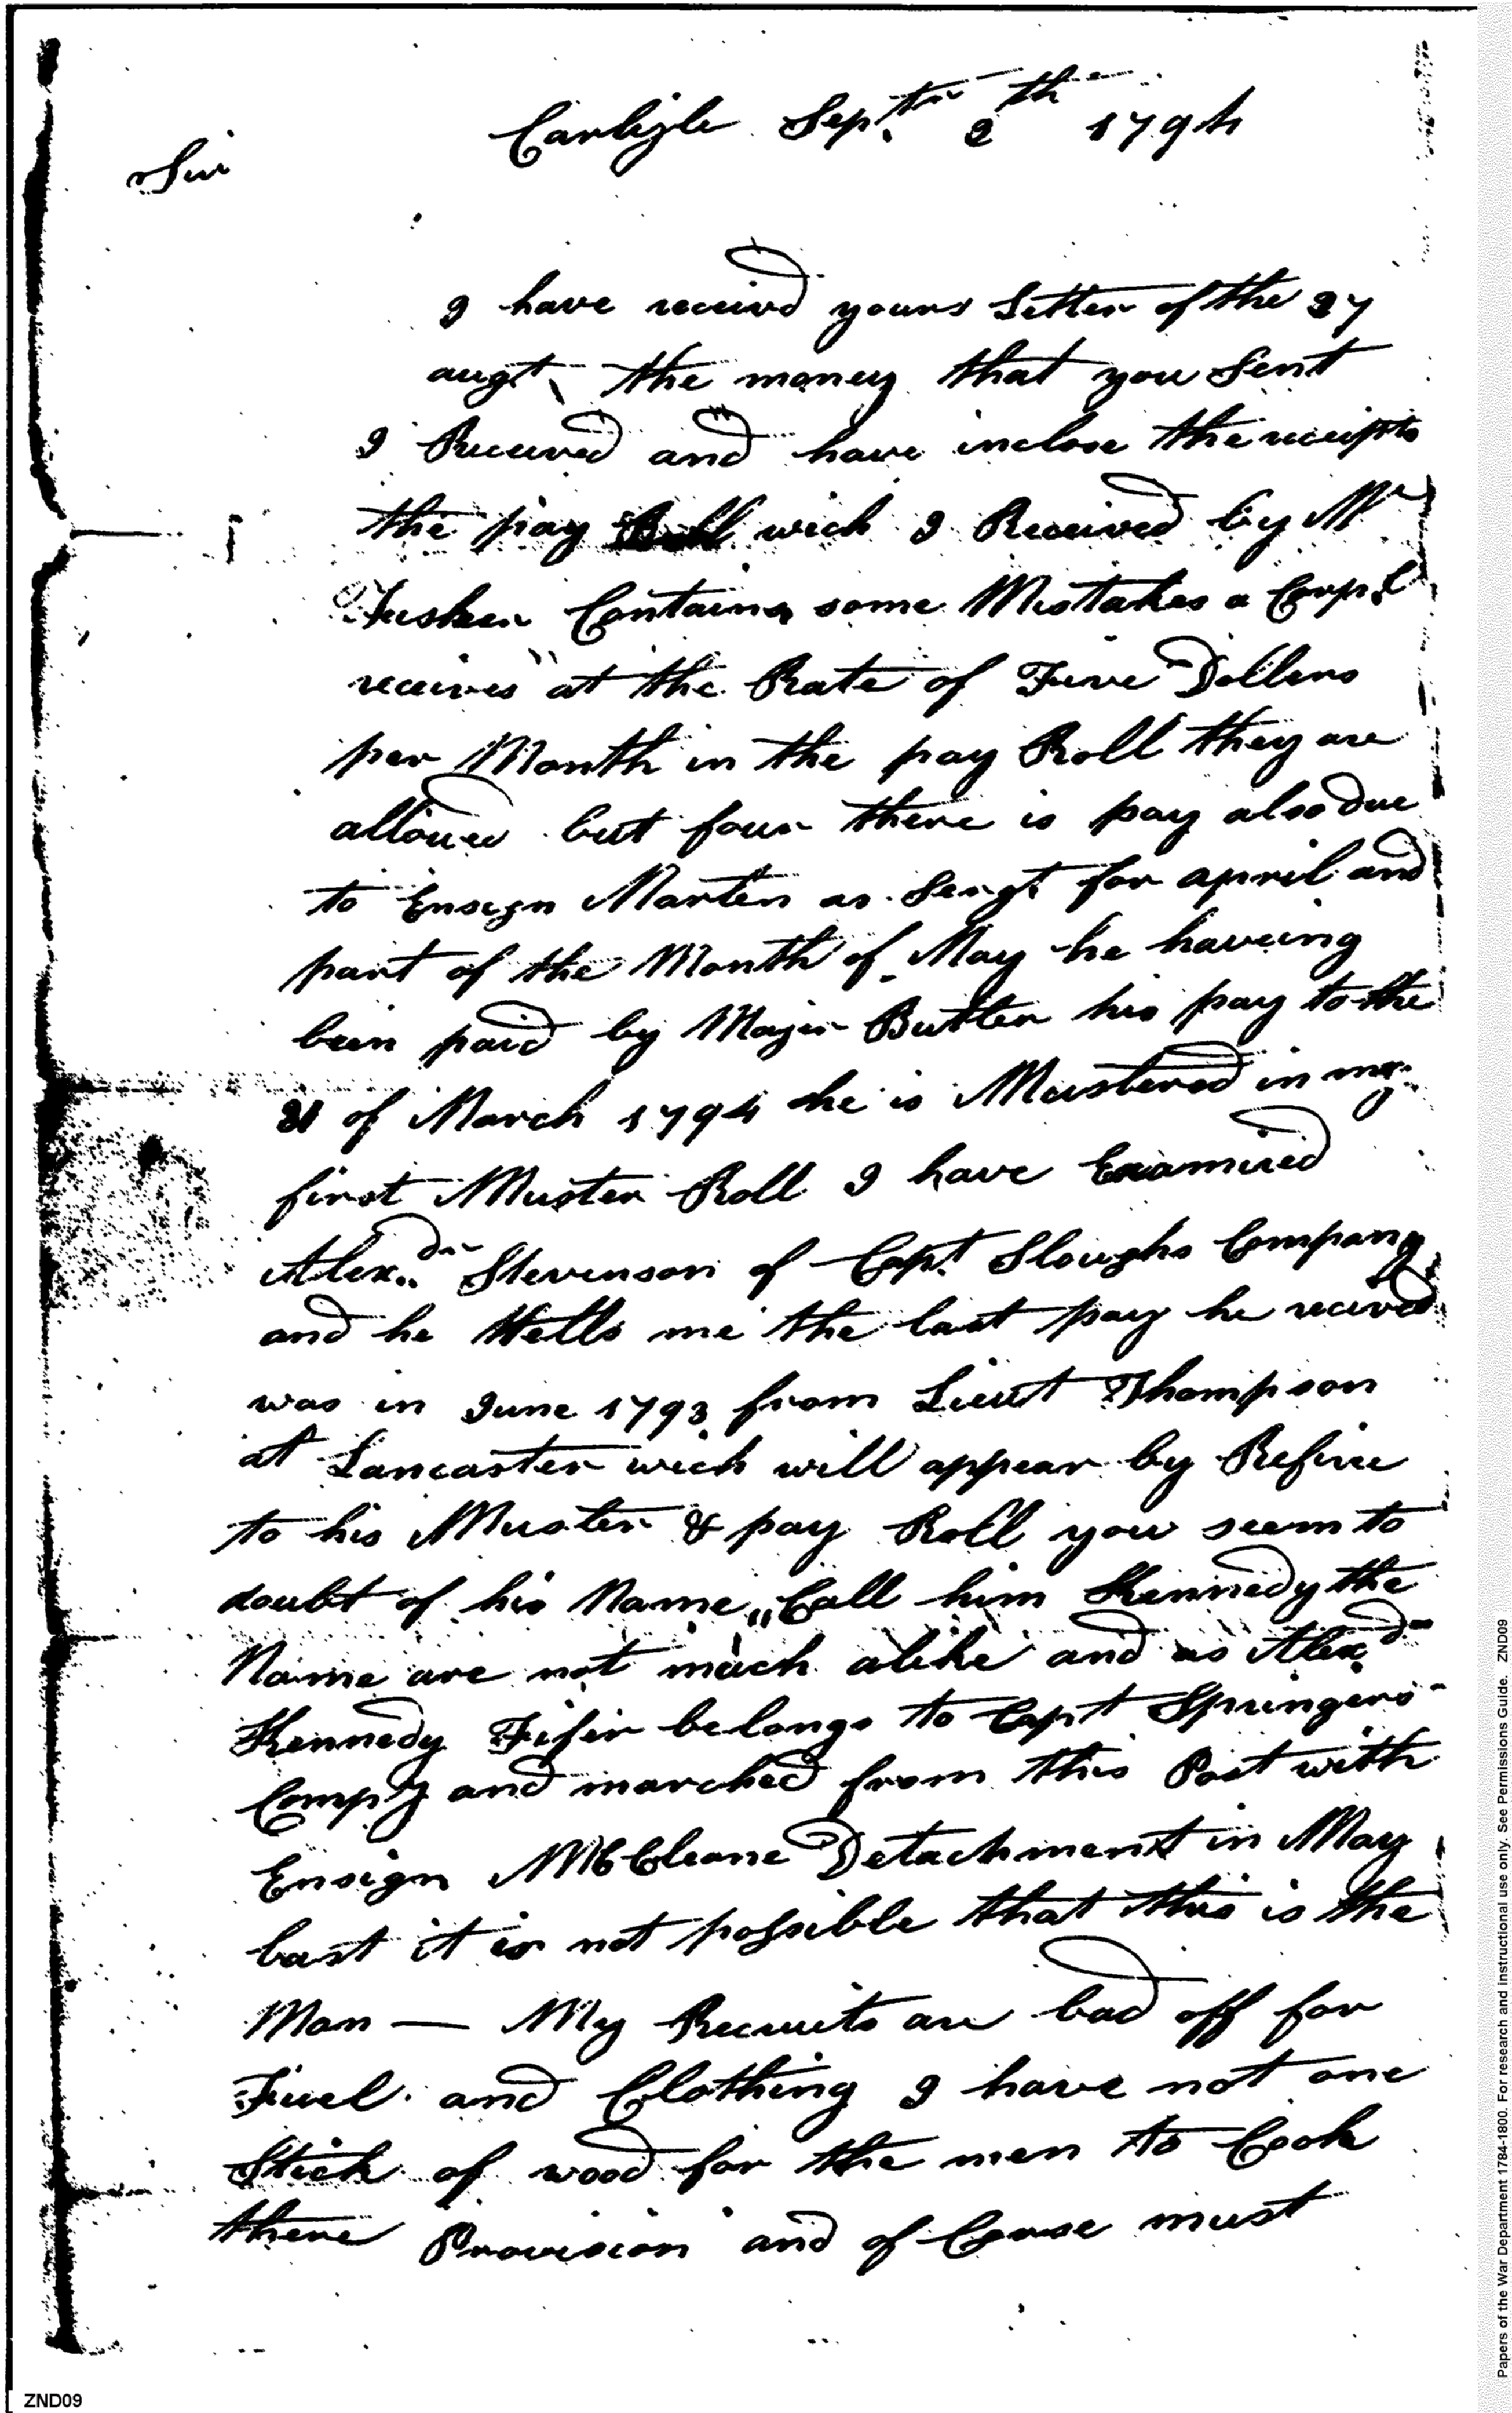 Carlizle Septr. 2th 1794
Sir
I have receivd yours Letter of the 27
augt. the money that you Sent
I Received and have inclose the receipts
the pay Roll wich I Received by Mr
Contains some Mistakes a Corpl
receives at the Rate of Five Dollers
per Month in the pay Roll they are
allowed but four there is pay also due
to Ensign Marten as Sergt for april and
part of the Month of May he haveing
been paid by Major Butler his pay to the
31 of March 1794 he is Mustered in my
first Muster Roll I have Examined
Alexdr. Stevenson of Capt. Sloughs Company
and he ttells me the last pay he recived
was in June 1793 from Lieut Thompson
at Lancaster wich will appear by Refire
to his Muster & pay Roll you seem to
doubt of his Name,, Call him Kennedy the
Name are not much alike and as Alexdr
Kennedy Fifir belongs to Capt Springers
Compy and marched from this Post with
Ensign McCleane Detachment in May
last it is not possible that this is the
Man — My Recruits are bad off for
Fuel and Clothing I have not one
Stick of wood for the men to Cook
there Provision and of Couse must
ZND09
Papers of the War Department 1784-1800. For research and instructional use only. See Permissions Guide. ZND09